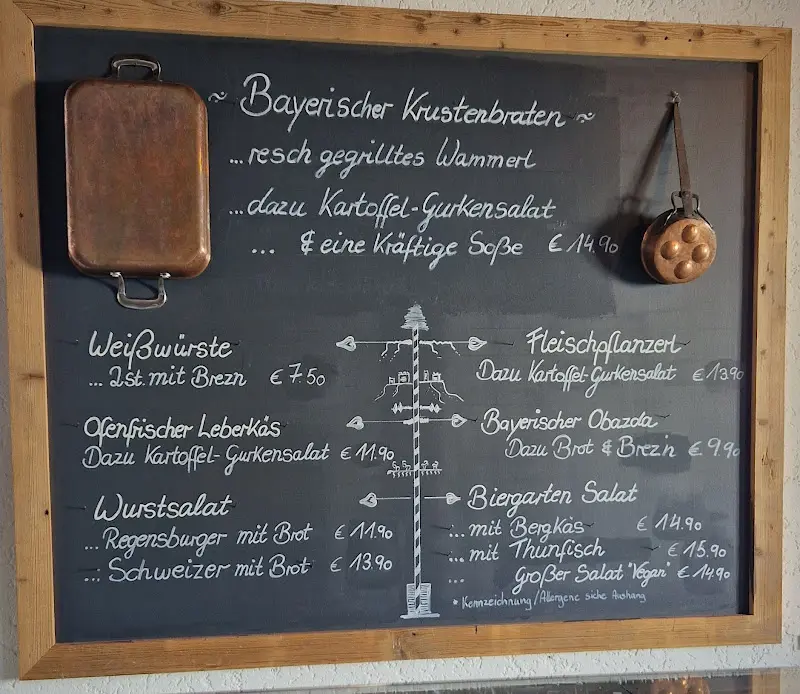 ~ Bayerischer Krustenbraten ~
...resch gegrilltes Wammerl
...dazu Kartoffel-Gurkensalat
... & eine Kräftige Soße € 14.90
Weißwürste
... 2 st. mit Brezn € 7.50
Ofenfrischer Leberkäs
Dazu Kartoffel-Gurkensalat € 11.90
Wurstsalat
... Regensburger mit Brot € 11.90
... Schweizer mit Brot € 13.90
Fleischpflanzerl
Dazu Kartoffel-Gurkensalat € 13.90
Bayerischer Obazda
Dazu Brot & Brez'n € 9.90
Biergarten Salat
... mit Bergkäs € 14.90
... mit Thunfisch € 15.90
... Großer Salat "Vegan" € 14.90
* Kennzeichnung/Allergene siehe Aushang